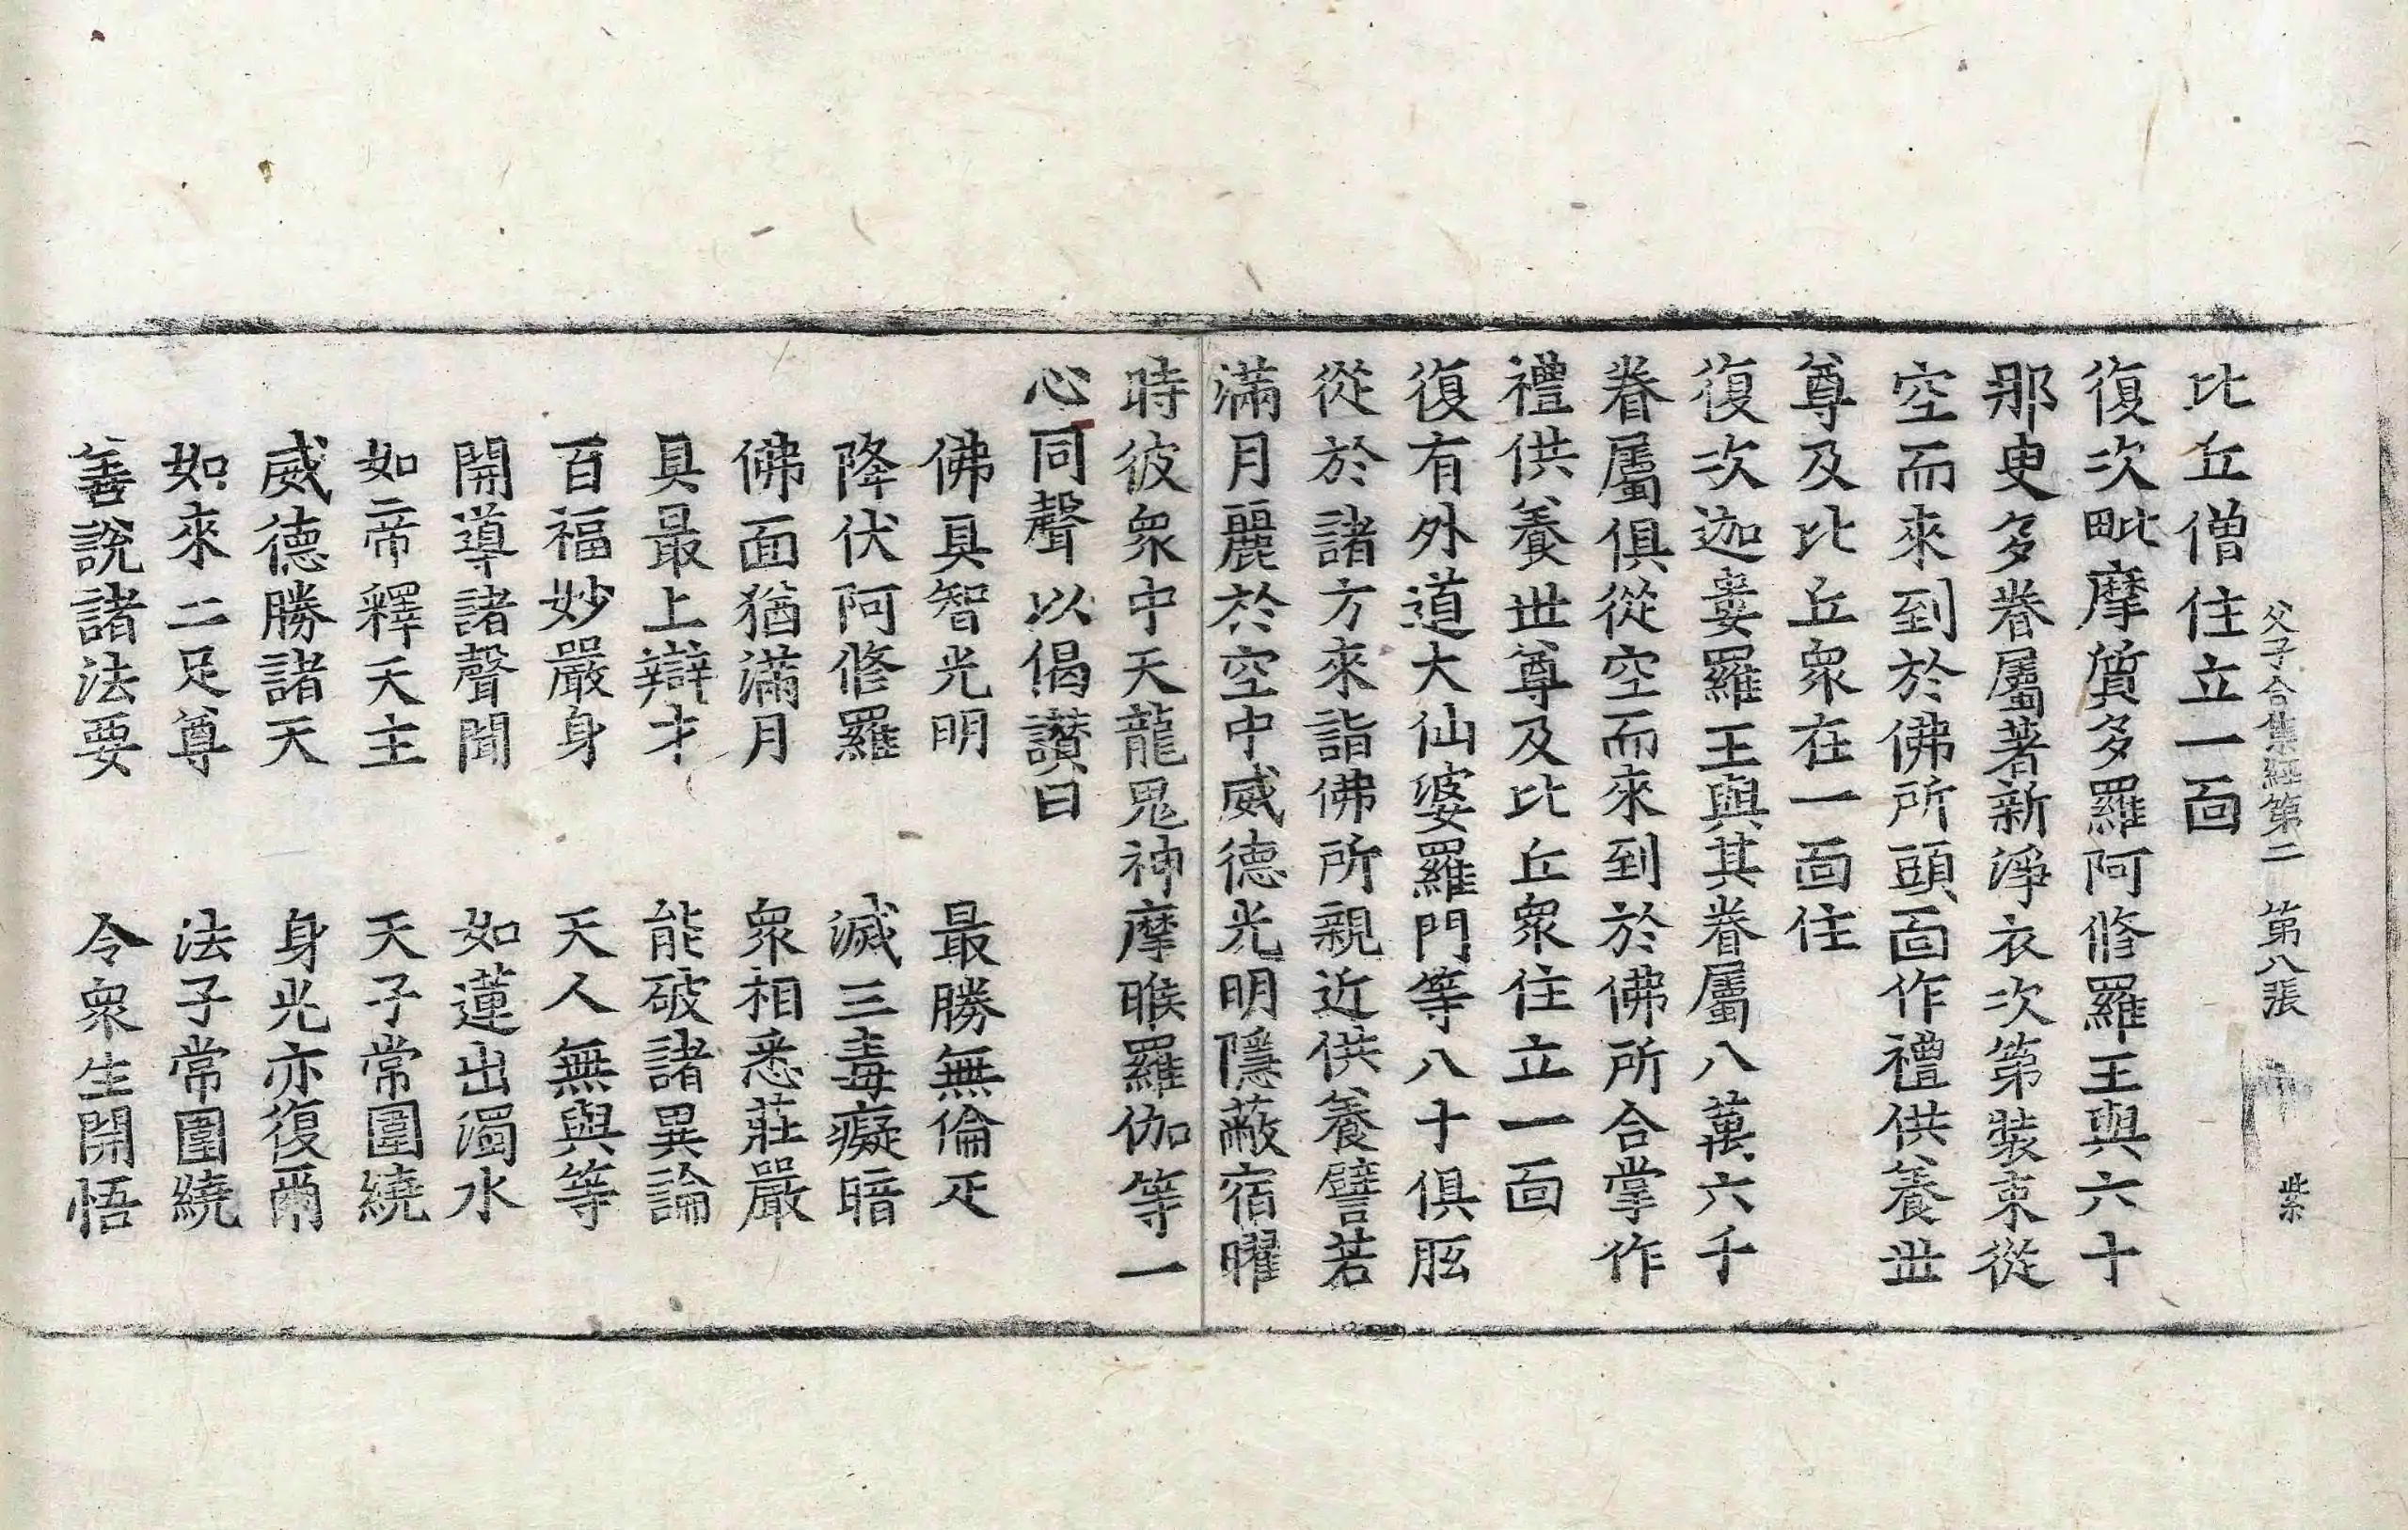 父子合集經第二 第八張 紫
比丘僧住立一面
復次毗摩質多羅阿修羅王與六十
那叓多眷屬著新淨衣次第裝束從
空而來到於佛所頭面作禮供養世
尊及比丘眾在一面住
復次迦婁羅王與其眷屬八萬六千
眷屬俱從空而來到於佛所合掌作
禮供養世尊及比丘眾住立一面
復有外道大仙婆羅門等八十俱胝
從於諸方來詣佛所親近供養譬若
滿月麗於空中威德光明隱蔽宿曜
時彼眾中天龍鬼神摩睺羅伽等一
心同聲以偈讚曰
佛具智光明 最勝無倫疋
降伏阿修羅 滅三毒癡暗
佛面猶滿月 眾相悉莊嚴
具最上辯才 能破諸異論
百福妙嚴身 天人無與等
開導諸聲聞 如蓮出濁水
如帝釋天主 天子常圍繞
威德勝諸天 身光亦復爾
如來二足尊 法子常圍繞
善說諸法要 令眾生開悟